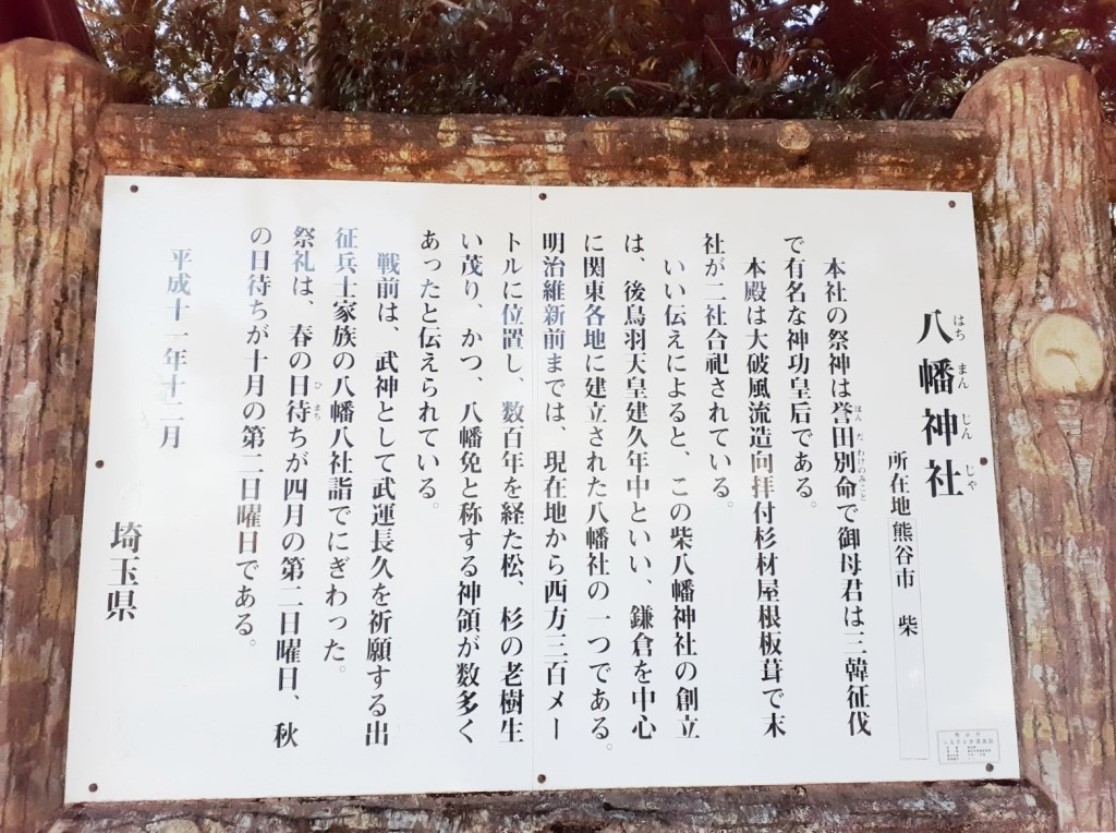 八幡神社
はちまんじんじゃ
所在地 熊谷市 柴
本社の祭神は誉田別命で御母君は三韓征伐
ほんだわけのみこと
で有名な神功皇后である。
本殿は大破風流造向拝付杉材屋根板葺で末
社が二社合祀されている。
いい伝えによると、この柴八幡神社の創立
は、後鳥羽天皇建久年中といい、鎌倉を中心
に関東各地に建立された八幡社の一つである。
明治維新前までは、現在地から西方三百メー
トルに位置し、数百年を経た松、杉の老樹生
い茂り、かつ、八幡免と称する神領が数多く
あったと伝えられている。
戦前は、武神として武運長久を祈願する出
征兵士家族の八幡八社詣でにぎわった。
祭礼は、春の日待ちが四月の第二日曜日、秋
ひまち
の日待ちが十月の第二日曜日である。
平成十一年十二月
埼玉県